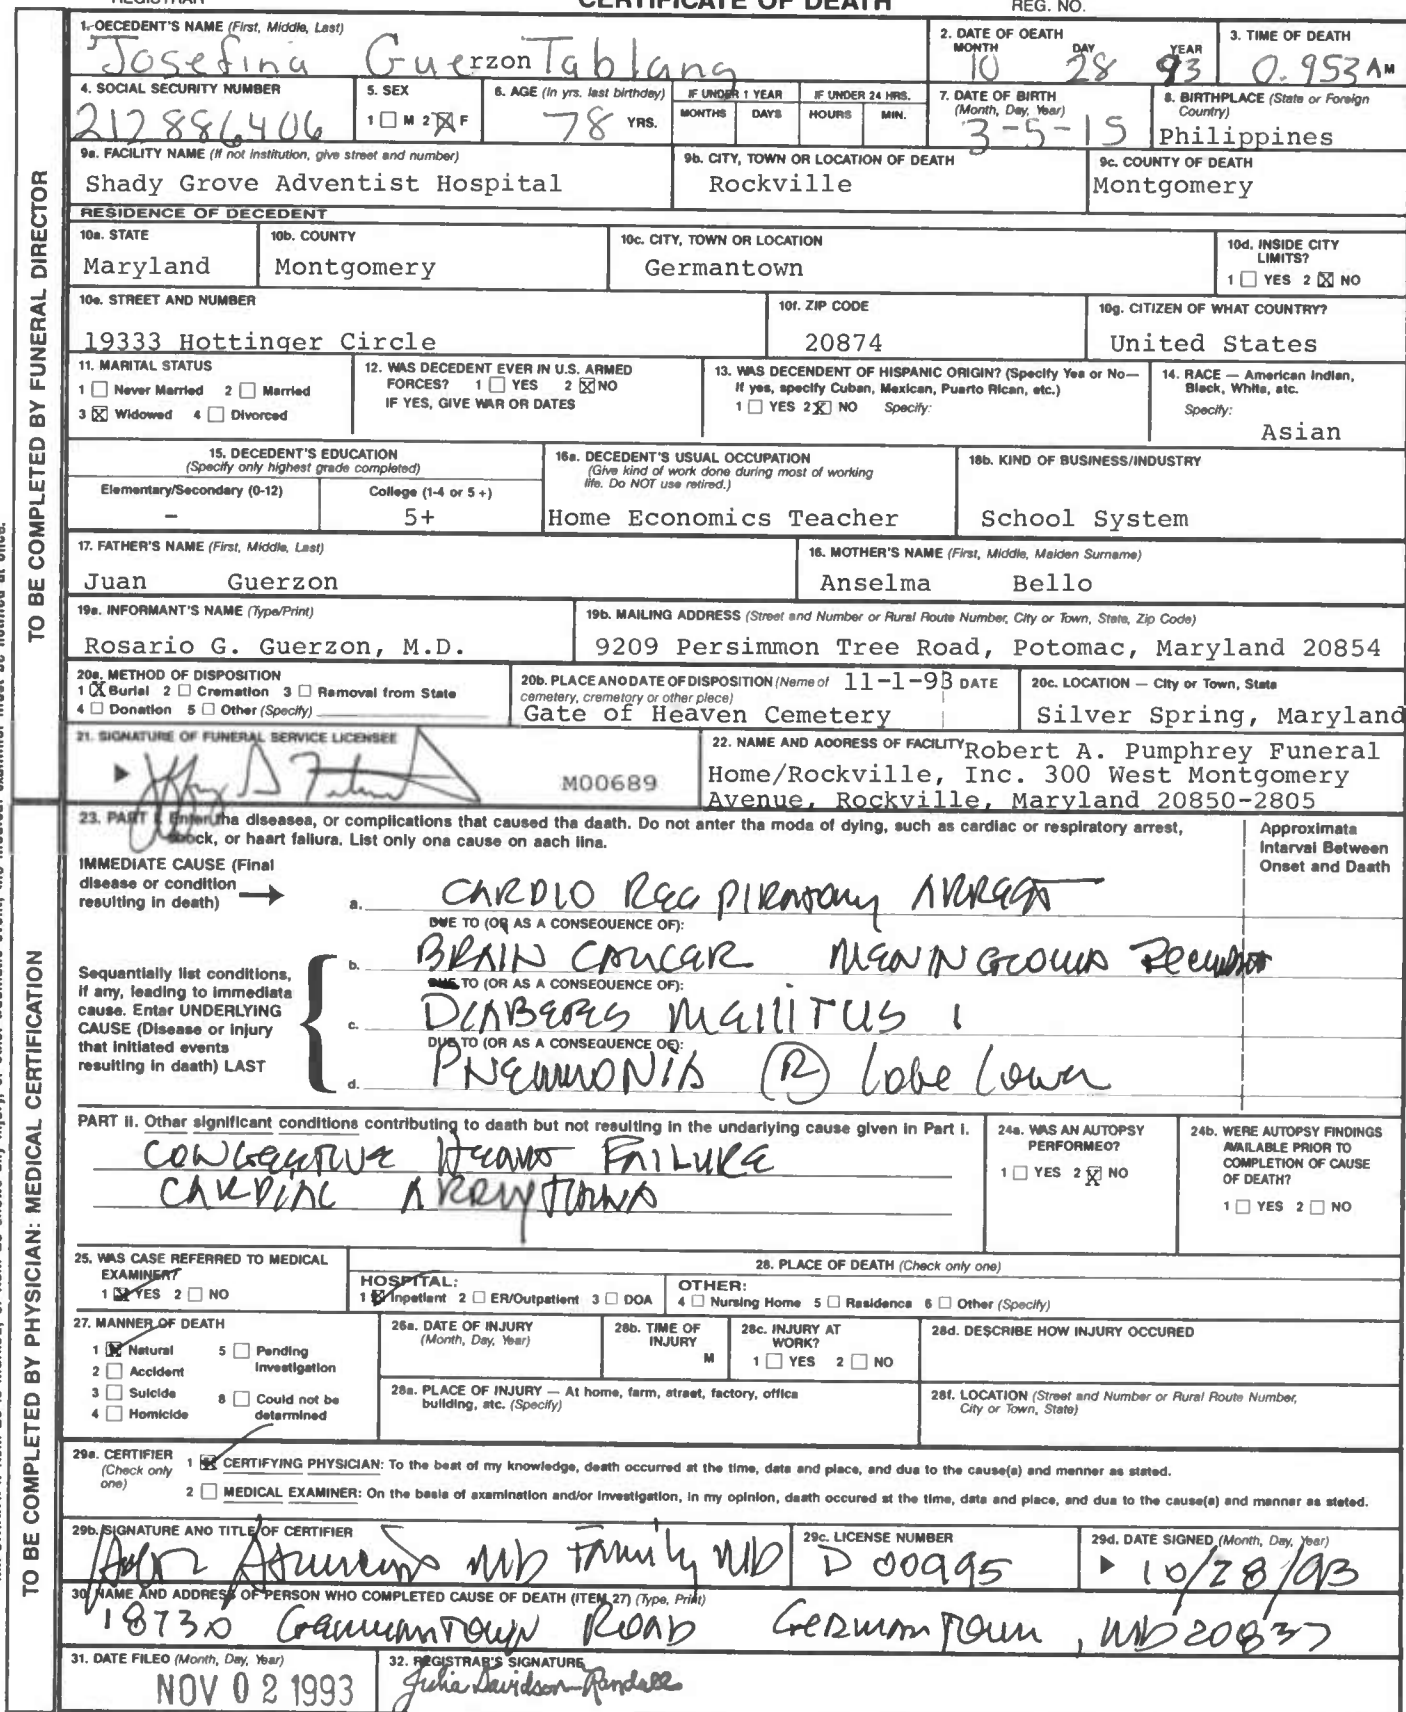 REGISTRAR CERTIFICATE OF DEATH REG. NO.
TO BE COMPLETED BY FUNERAL DIRECTOR
1. DECEDENT'S NAME (First, Middle, Last)
Josefina Guerzon Tablang
2. DATE OF DEATH
MONTH DAY YEAR
10 28 93
3. TIME OF DEATH
0.953 AM
4. SOCIAL SECURITY NUMBER
212886406
5. SEX
1 ☐ M 2 ☒ F
6. AGE (In yrs. last birthday)
78 YRS.
IF UNDER 1 YEAR
MONTHS DAYS
IF UNDER 24 HRS.
HOURS MIN.
7. DATE OF BIRTH
(Month, Day, Year)
3-5-15
8. BIRTHPLACE (State or Foreign
Country)
Philippines
9a. FACILITY NAME (If not institution, give street and number)
Shady Grove Adventist Hospital
9b. CITY, TOWN OR LOCATION OF DEATH
Rockville
9c. COUNTY OF DEATH
Montgomery
RESIDENCE OF DECEDENT
10a. STATE
Maryland
10b. COUNTY
Montgomery
10c. CITY, TOWN OR LOCATION
Germantown
10d. INSIDE CITY
LIMITS?
1 ☐ YES 2 ☒ NO
10e. STREET AND NUMBER
19333 Hottinger Circle
10f. ZIP CODE
20874
10g. CITIZEN OF WHAT COUNTRY?
United States
11. MARITAL STATUS
1 ☐ Never Married 2 ☐ Married
3 ☒ Widowed 4 ☐ Divorced
12. WAS DECEDENT EVER IN U.S. ARMED
FORCES? 1 ☐ YES 2 ☒ NO
IF YES, GIVE WAR OR DATES
13. WAS DECENDENT OF HISPANIC ORIGIN? (Specify Yes or No—
If yes, specify Cuban, Mexican, Puerto Rican, etc.)
1 ☐ YES 2 ☒ NO Specify:
14. RACE — American Indian,
Black, White, etc.
Specify:
Asian
15. DECEDENT'S EDUCATION
(Specify only highest grade completed)
Elementary/Secondary (0-12)
–
College (1-4 or 5 +)
5+
16a. DECEDENT'S USUAL OCCUPATION
(Give kind of work done during most of working
life. Do NOT use retired.)
Home Economics Teacher
16b. KIND OF BUSINESS/INDUSTRY
School System
17. FATHER'S NAME (First, Middle, Last)
Juan Guerzon
18. MOTHER'S NAME (First, Middle, Maiden Surname)
Anselma Bello
19a. INFORMANT'S NAME (Type/Print)
Rosario G. Guerzon, M.D.
19b. MAILING ADDRESS (Street and Number or Rural Route Number, City or Town, State, Zip Code)
9209 Persimmon Tree Road, Potomac, Maryland 20854
20a. METHOD OF DISPOSITION
1 ☒ Burial 2 ☐ Cremation 3 ☐ Removal from State
4 ☐ Donation 5 ☐ Other (Specify)
20b. PLACE AND DATE OF DISPOSITION (Name of 11-1-93 DATE
cemetery, crematory or other place)
Gate of Heaven Cemetery
20c. LOCATION — City or Town, State
Silver Spring, Maryland
21. SIGNATURE OF FUNERAL SERVICE LICENSEE
M00689
22. NAME AND ADDRESS OF FACILITY Robert A. Pumphrey Funeral
Home/Rockville, Inc. 300 West Montgomery
Avenue, Rockville, Maryland 20850-2805
TO BE COMPLETED BY PHYSICIAN: MEDICAL CERTIFICATION
23. PART I. Enter the diseases, or complications that caused the death. Do not enter the mode of dying, such as cardiac or respiratory arrest,
shock, or heart failure. List only one cause on each line.
Approximate
Interval Between
Onset and Death
IMMEDIATE CAUSE (Final
disease or condition
resulting in death) →
a. CARDIO RESPIRATORY ARREST
DUE TO (OR AS A CONSEQUENCE OF):
b. BRAIN CANCER MENINGIOMA RECURRENT
Sequentially list conditions,
if any, leading to immediate
cause. Enter UNDERLYING
CAUSE (Disease or injury
that initiated events
resulting in death) LAST
DUE TO (OR AS A CONSEQUENCE OF):
c. DIABETES MELLITUS 1
DUE TO (OR AS A CONSEQUENCE OF):
d. PNEUMONIA (R) Lobe Lower
PART II. Other significant conditions contributing to death but not resulting in the underlying cause given in Part I.
CONGESTIVE HEART FAILURE
CARDIAC ARRYTHMIA
24a. WAS AN AUTOPSY
PERFORMED?
1 ☐ YES 2 ☒ NO
24b. WERE AUTOPSY FINDINGS
AVAILABLE PRIOR TO
COMPLETION OF CAUSE
OF DEATH?
1 ☐ YES 2 ☐ NO
25. WAS CASE REFERRED TO MEDICAL
EXAMINER?
1 ☒ YES 2 ☐ NO
26. PLACE OF DEATH (Check only one)
HOSPITAL:
1 ☒ Inpatient 2 ☐ ER/Outpatient 3 ☐ DOA
OTHER:
4 ☐ Nursing Home 5 ☐ Residence 6 ☐ Other (Specify)
27. MANNER OF DEATH
1 ☒ Natural 5 ☐ Pending
Investigation
2 ☐ Accident
3 ☐ Suicide 8 ☐ Could not be
4 ☐ Homicide determined
28a. DATE OF INJURY
(Month, Day, Year)
28b. TIME OF
INJURY
M
28c. INJURY AT
WORK?
1 ☐ YES 2 ☐ NO
28d. DESCRIBE HOW INJURY OCCURED
28e. PLACE OF INJURY — At home, farm, street, factory, office
building, etc. (Specify)
28f. LOCATION (Street and Number or Rural Route Number,
City or Town, State)
29a. CERTIFIER
(Check only
one)
1 ☒ CERTIFYING PHYSICIAN: To the best of my knowledge, death occurred at the time, date and place, and due to the cause(s) and manner as stated.
2 ☐ MEDICAL EXAMINER: On the basis of examination and/or investigation, in my opinion, death occured at the time, date and place, and due to the cause(s) and manner as stated.
29b. SIGNATURE AND TITLE OF CERTIFIER
MD Family MD
29c. LICENSE NUMBER
D 00995
29d. DATE SIGNED (Month, Day, Year)
10/28/93
30. NAME AND ADDRESS OF PERSON WHO COMPLETED CAUSE OF DEATH (ITEM 27) (Type, Print)
18730 Germantown Road Germantown, MD 20837
31. DATE FILED (Month, Day, Year)
NOV 02 1993
32. REGISTRAR'S SIGNATURE
Julia Davidson-Randall